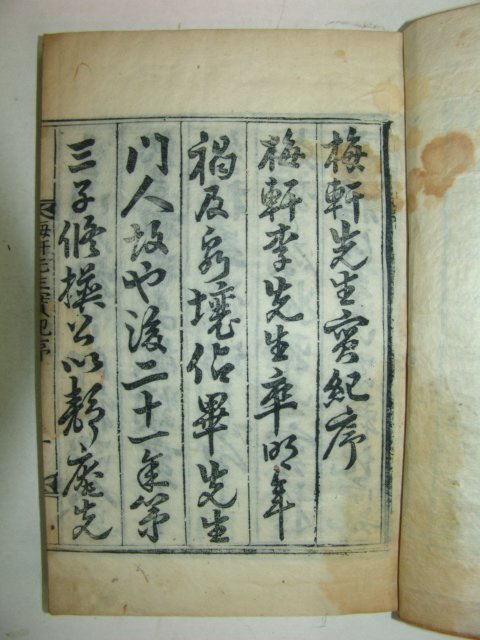 梅軒先生實紀序
梅軒李先生卒明年
禍及窮壤佔畢先生
門人故也後二十一年第
三子修撰公以靜庵先
梅軒先生實紀序
一